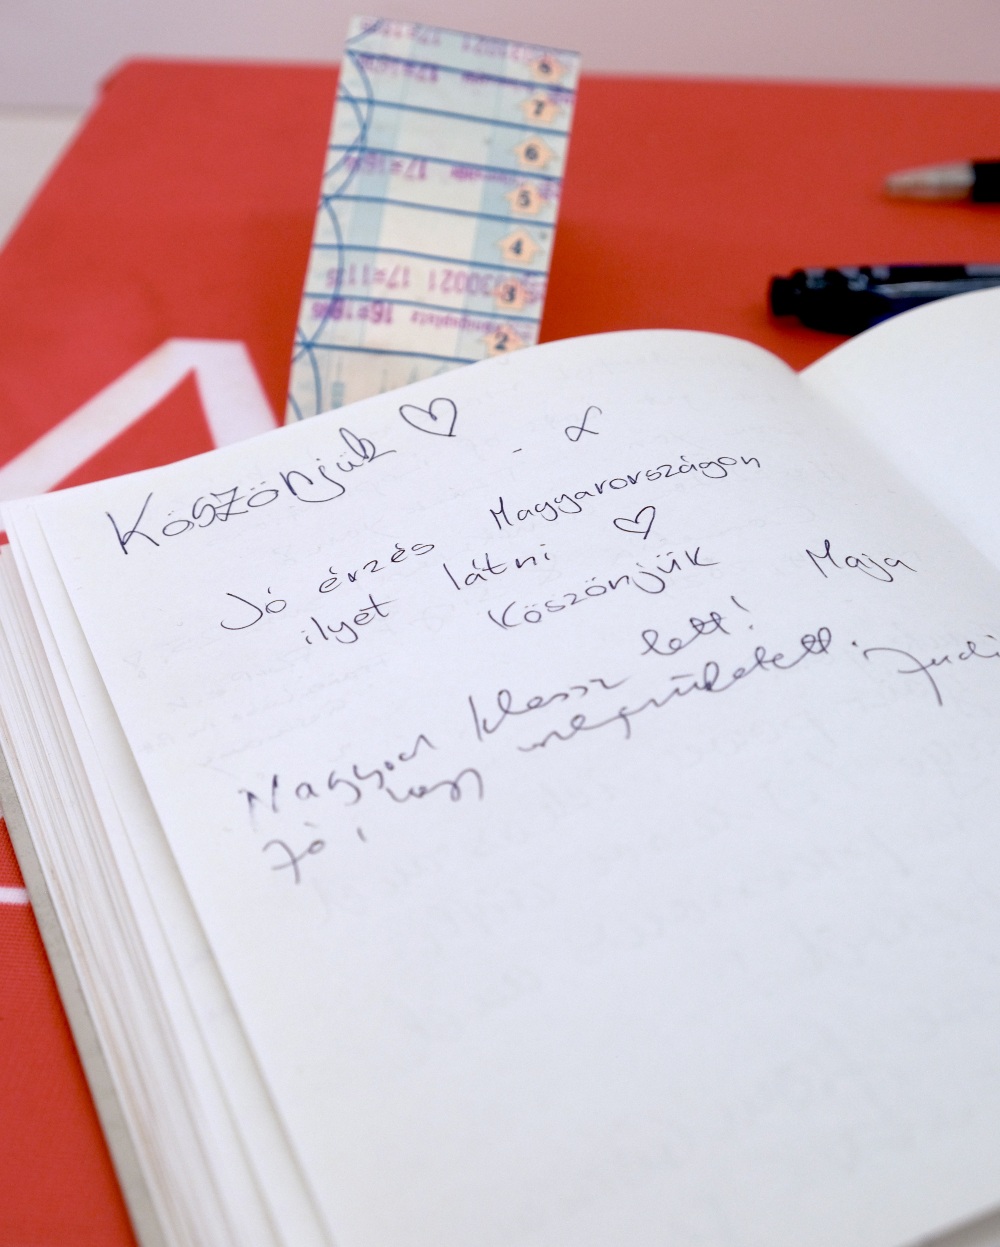 Köszönjük ♡
- ∝
Jó érzés Magyarországon
ilyet látni ♡
Köszönjük Maja
Nagyon klassz lett!
Jó, hogy megszületett. Judi
8
7
6
5
4
3
2